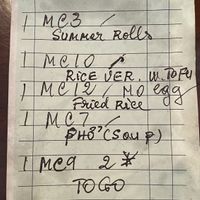 1 MC3 /
Summer Rolls
1 MC10 /
RICE VER. W. TOFU
1 MC12 / NO egg
Fried Rice
1 MC7 /
PHO (Soup)
1 MC9 2
TO GO